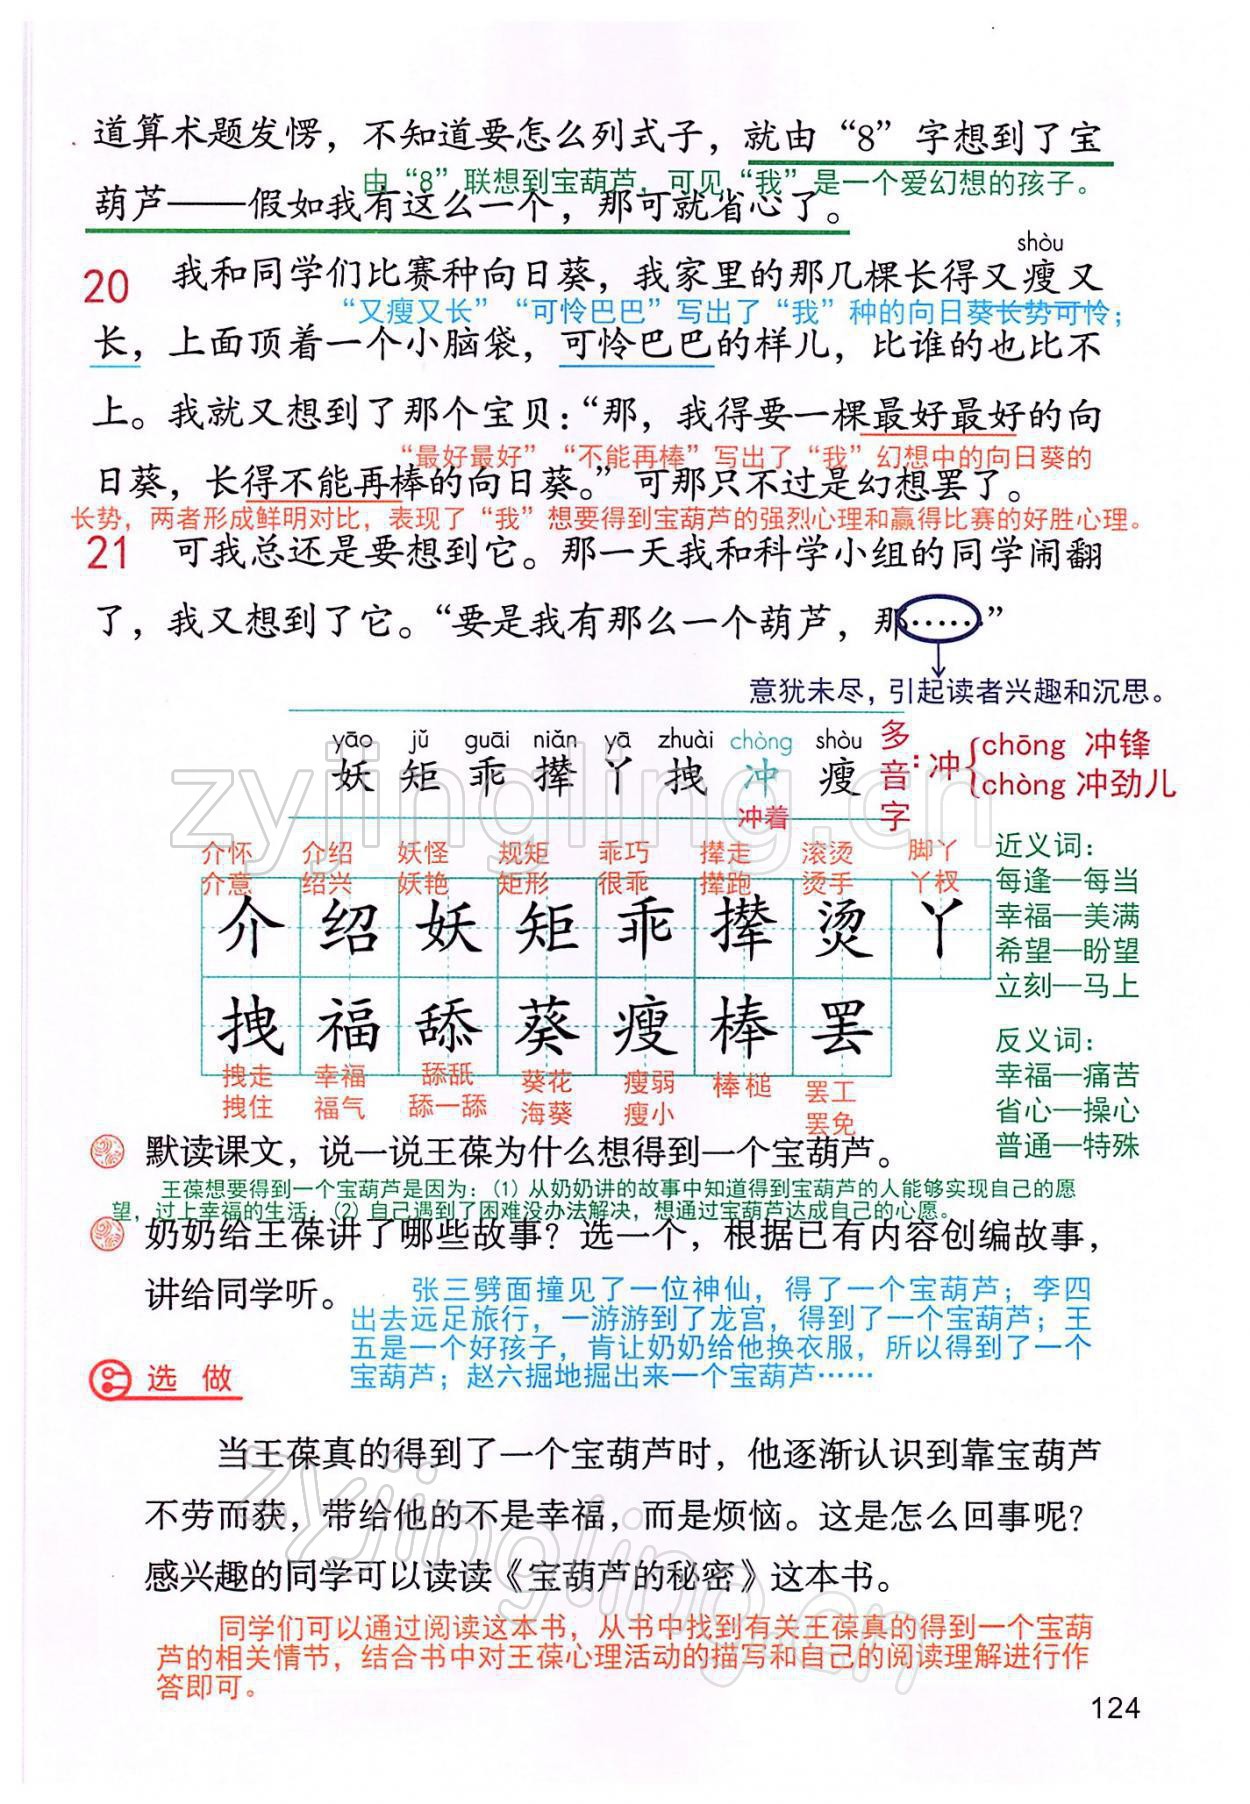 道算术题发愣，不知道要怎么列式子，就由“8”字想到了宝
由“8”联想到宝葫芦，可见“我”是一个爱幻想的孩子。
葫芦——假如我有这么一个，那可就省心了。
shòu
20 我和同学们比赛种向日葵，我家里的那几棵长得又瘦又
“又瘦又长”“可怜巴巴”写出了“我”种的向日葵长势可怜；
长，上面顶着一个小脑袋，可怜巴巴的样儿，比谁的也比不
上。我就又想到了那个宝贝：“那，我得要一棵最好最好的向
“最好最好”“不能再棒”写出了“我”幻想中的向日葵的
日葵，长得不能再棒的向日葵。”可那只不过是幻想罢了。
长势，两者形成鲜明对比，表现了“我”想要得到宝葫芦的强烈心理和赢得比赛的好胜心理。
21 可我总还是要想到它。那一天我和科学小组的同学闹翻
了，我又想到了它。“要是我有那么一个葫芦，那……”
意犹未尽，引起读者兴趣和沉思。
yāo jǔ guāi niǎn yā zhuài chòng shòu
妖 矩 乖 撵 丫 拽 冲 瘦
冲着
多音字：冲
chōng 冲锋
chòng 冲劲儿
介怀 介绍 妖怪 规矩 乖巧 撵走 滚烫 脚丫
介意 绍兴 妖艳 矩形 很乖 撵跑 烫手 丫杈
介 绍 妖 矩 乖 撵 烫 丫
拽 福 舔 葵 瘦 棒 罢
拽走 幸福 舔舐 葵花 瘦弱 棒槌 罢工
拽住 福气 舔一舔 海葵 瘦小 罢免
近义词：
每逢—每当
幸福—美满
希望—盼望
立刻—马上
反义词：
幸福—痛苦
省心—操心
普通—特殊
默读课文，说一说王葆为什么想得到一个宝葫芦。
王葆想要得到一个宝葫芦是因为：(1) 从奶奶讲的故事中知道得到宝葫芦的人能够实现自己的愿
望，过上幸福的生活；(2) 自己遇到了困难没办法解决，想通过宝葫芦达成自己的心愿。
奶奶给王葆讲了哪些故事？选一个，根据已有内容创编故事，
讲给同学听。
张三劈面撞见了一位神仙，得了一个宝葫芦；李四
出去远足旅行，一游游到了龙宫，得到了一个宝葫芦；王
五是一个好孩子，肯让奶奶给他换衣服，所以得到了一个
宝葫芦；赵六掘地掘出来一个宝葫芦……
选做
当王葆真的得到了一个宝葫芦时，他逐渐认识到靠宝葫芦
不劳而获，带给他的不是幸福，而是烦恼。这是怎么回事呢？
感兴趣的同学可以读读《宝葫芦的秘密》这本书。
同学们可以通过阅读这本书，从书中找到有关王葆真的得到一个宝葫
芦的相关情节，结合书中对王葆心理活动的描写和自己的阅读理解进行作
答即可。
124
zyjingling.cn
zyjingling.cn